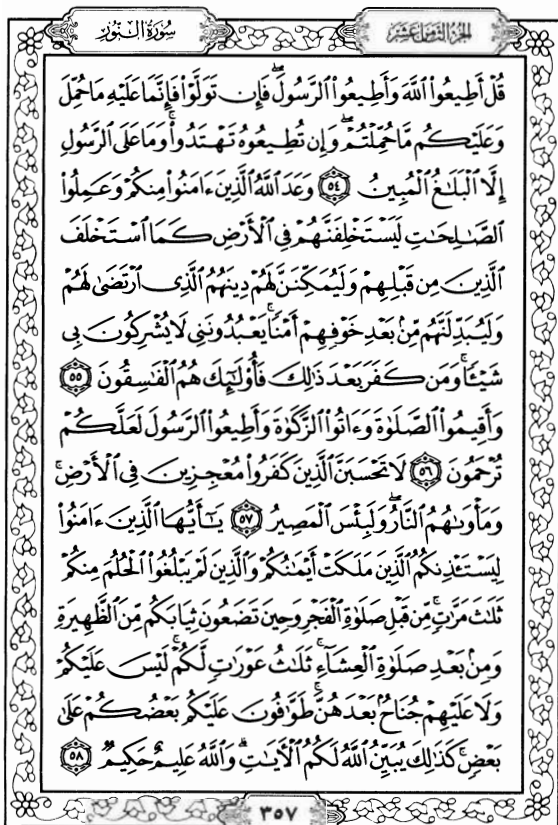 سُورَةُ النُّورِ
الجُزْءُ الثَّامِنَ عَشَرَ
قُلْ أَطِيعُوا۟ ٱللَّهَ وَأَطِيعُوا۟ ٱلرَّسُولَ ۖ فَإِن تَوَلَّوْا۟ فَإِنَّمَا عَلَيْهِ مَا حُمِّلَ
وَعَلَيْكُم مَّا حُمِّلْتُمْ ۖ وَإِن تُطِيعُوهُ تَهْتَدُوا۟ ۚ وَمَا عَلَى ٱلرَّسُولِ
إِلَّا ٱلْبَلَٰغُ ٱلْمُبِينُ ٥٤ وَعَدَ ٱللَّهُ ٱلَّذِينَ ءَامَنُوا۟ مِنكُمْ وَعَمِلُوا۟
ٱلصَّٰلِحَٰتِ لَيَسْتَخْلِفَنَّهُمْ فِى ٱلْأَرْضِ كَمَا ٱسْتَخْلَفَ
ٱلَّذِينَ مِن قَبْلِهِمْ وَلَيُمَكِّنَنَّ لَهُمْ دِينَهُمُ ٱلَّذِى ٱرْتَضَىٰ لَهُمْ
وَلَيُبَدِّلَنَّهُم مِّنۢ بَعْدِ خَوْفِهِمْ أَمْنًا ۚ يَعْبُدُونَنِى لَا يُشْرِكُونَ بِى
شَيْـًٔا ۚ وَمَن كَفَرَ بَعْدَ ذَٰلِكَ فَأُو۟لَٰٓئِكَ هُمُ ٱلْفَٰسِقُونَ ٥٥
وَأَقِيمُوا۟ ٱلصَّلَوٰةَ وَءَاتُوا۟ ٱلزَّكَوٰةَ وَأَطِيعُوا۟ ٱلرَّسُولَ لَعَلَّكُمْ
تُرْحَمُونَ ٥٦ لَا تَحْسَبَنَّ ٱلَّذِينَ كَفَرُوا۟ مُعْجِزِينَ فِى ٱلْأَرْضِ ۚ
وَمَأْوَىٰهُمُ ٱلنَّارُ ۖ وَلَبِئْسَ ٱلْمَصِيرُ ٥٧ يَٰٓأَيُّهَا ٱلَّذِينَ ءَامَنُوا۟
لِيَسْتَـْٔذِنكُمُ ٱلَّذِينَ مَلَكَتْ أَيْمَٰنُكُمْ وَٱلَّذِينَ لَمْ يَبْلُغُوا۟ ٱلْحُلُمَ مِنكُمْ
ثَلَٰثَ مَرَّٰتٍ ۚ مِّن قَبْلِ صَلَوٰةِ ٱلْفَجْرِ وَحِينَ تَضَعُونَ ثِيَابَكُم مِّنَ ٱلظَّهِيرَةِ
وَمِنۢ بَعْدِ صَلَوٰةِ ٱلْعِشَآءِ ۚ ثَلَٰثُ عَوْرَٰتٍ لَّكُمْ ۚ لَيْسَ عَلَيْكُمْ
وَلَا عَلَيْهِمْ جُنَاحٌۢ بَعْدَهُنَّ ۚ طَوَّٰفُونَ عَلَيْكُم بَعْضُكُمْ عَلَىٰ
بَعْضٍ ۚ كَذَٰلِكَ يُبَيِّنُ ٱللَّهُ لَكُمُ ٱلْـَٔايَٰتِ ۗ وَٱللَّهُ عَلِيمٌ حَكِيمٌ ٥٨
٣٥٧